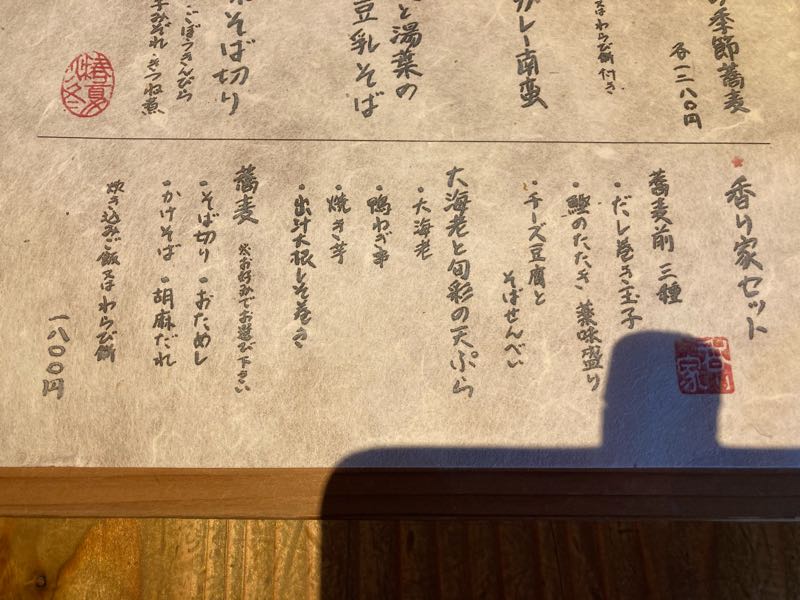 り季節蕎麦
各一二八〇円
又はわらび餅付き
カレー南蛮
と湯葉の
豆乳そば
そば切り
ごぼうきんぴら
子みぞれ・きつね煮
椿夏
冬
香り家セット
香り家
蕎麦前 三種
・だし巻き玉子
・鰹のたたき 薬味盛り
・チーズ豆腐と
そばせんべい
大海老と旬彩の天ぷら
・大海老
・鴨ねぎ串
・焼き芋
・出汁大根しそ巻き
蕎麦 ※お好みでお選び下さい
・そば切り ・おためし
・かけそば ・胡麻だれ
炊き込みご飯又はわらび餅
一八〇〇円